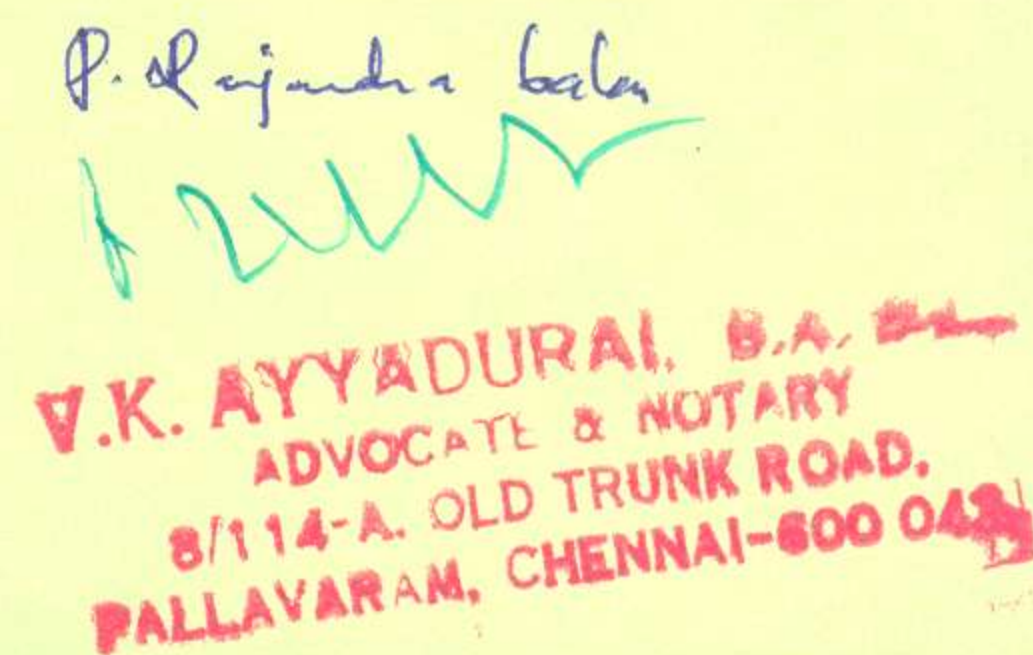 P. Rajendra balan
V.K. AYYADURAI, B.A.
ADVOCATE & NOTARY
8/114-A. OLD TRUNK ROAD.
PALLAVARAM, CHENNAI-600 043